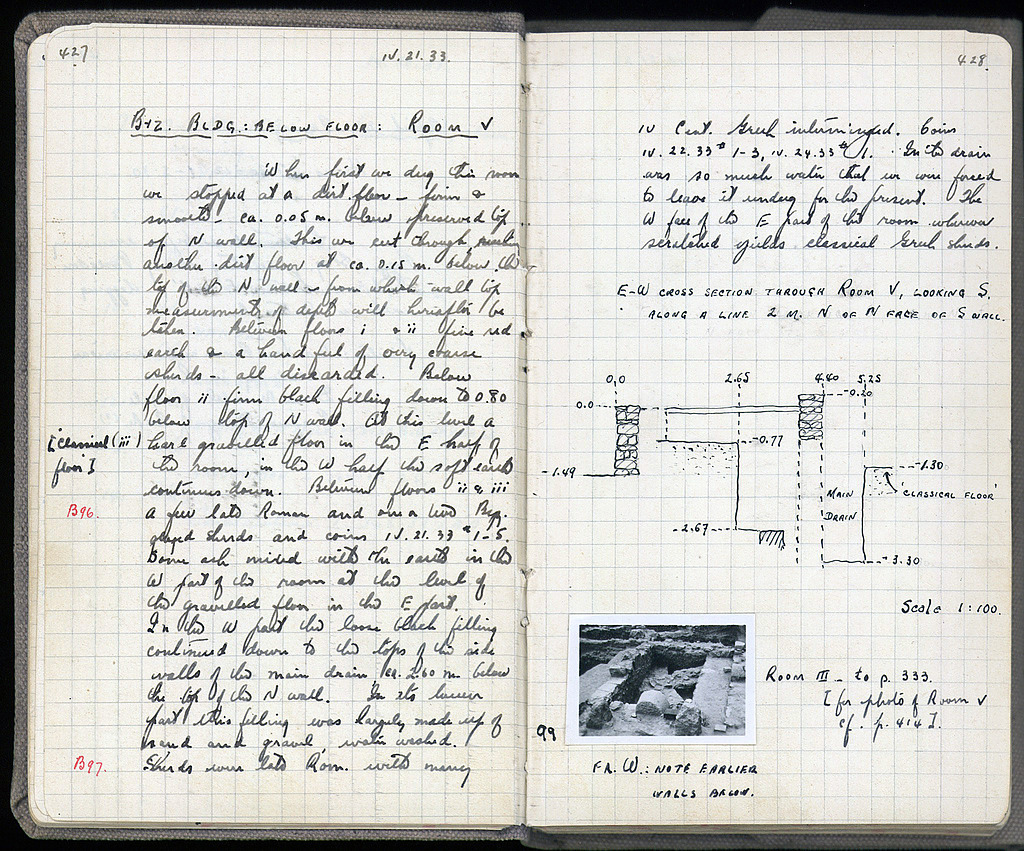 427
IV. 21. 33.
BYZ. BLDG.: BELOW FLOOR: ROOM V
When first we dug this room
we stopped at a dirt floor - firm &
smooth - ca. 0.05 m. below preserved top
of N wall. This we cut through, meeting
another dirt floor at ca. 0.15 m. below the
top of the N wall - from which wall top
measurements of depth will hereafter be
taken. Between floors i & ii fine red
earth & a handful of very coarse
sherds - all discarded. Below
floor ii firm black filling down to 0.80
below top of N wall. At this level a
[Classical (iii) hard gravelled floor in the E half of
floor] the room, in the W half the soft earth
continues down. Between floors ii & iii
B96. a few late Roman and one or two Byz.
glazed sherds and coins IV. 21. 33 # 1-5.
Some ash mixed with the earth in the
W part of the room at the level of
the gravelled floor in the E part.
In the W part the loose black filling
continued down to the tops of the side
walls of the main drain, ca. 2.60 m. below
the top of the N wall. In its lower
part this filling was largely made up of
sand and gravel, water washed.
B97. Sherds were late Rom. with many
428
IV Cent. Greek intermingled. Coins
IV. 22. 33 # 1-3, IV. 24. 33 # 1. In the drain
was so much water that we were forced
to leave it undug for the present. The
W face of the E part of the room wherever
scratched yields classical Greek sherds.
E-W CROSS SECTION THROUGH ROOM V, LOOKING S.
ALONG A LINE 2 M. N OF N FACE OF S WALL.
0,0 2.65 4.40 5.25
0.0 -0.20
-0.77
-1.49 -1.30
MAIN 'CLASSICAL FLOOR'
DRAIN
-2.67
-3.30
Scale 1:100.
ROOM III - to p. 333.
[for photo of Room V
cf. p. 414].
99
FR. W.: NOTE EARLIER
WALLS BELOW.